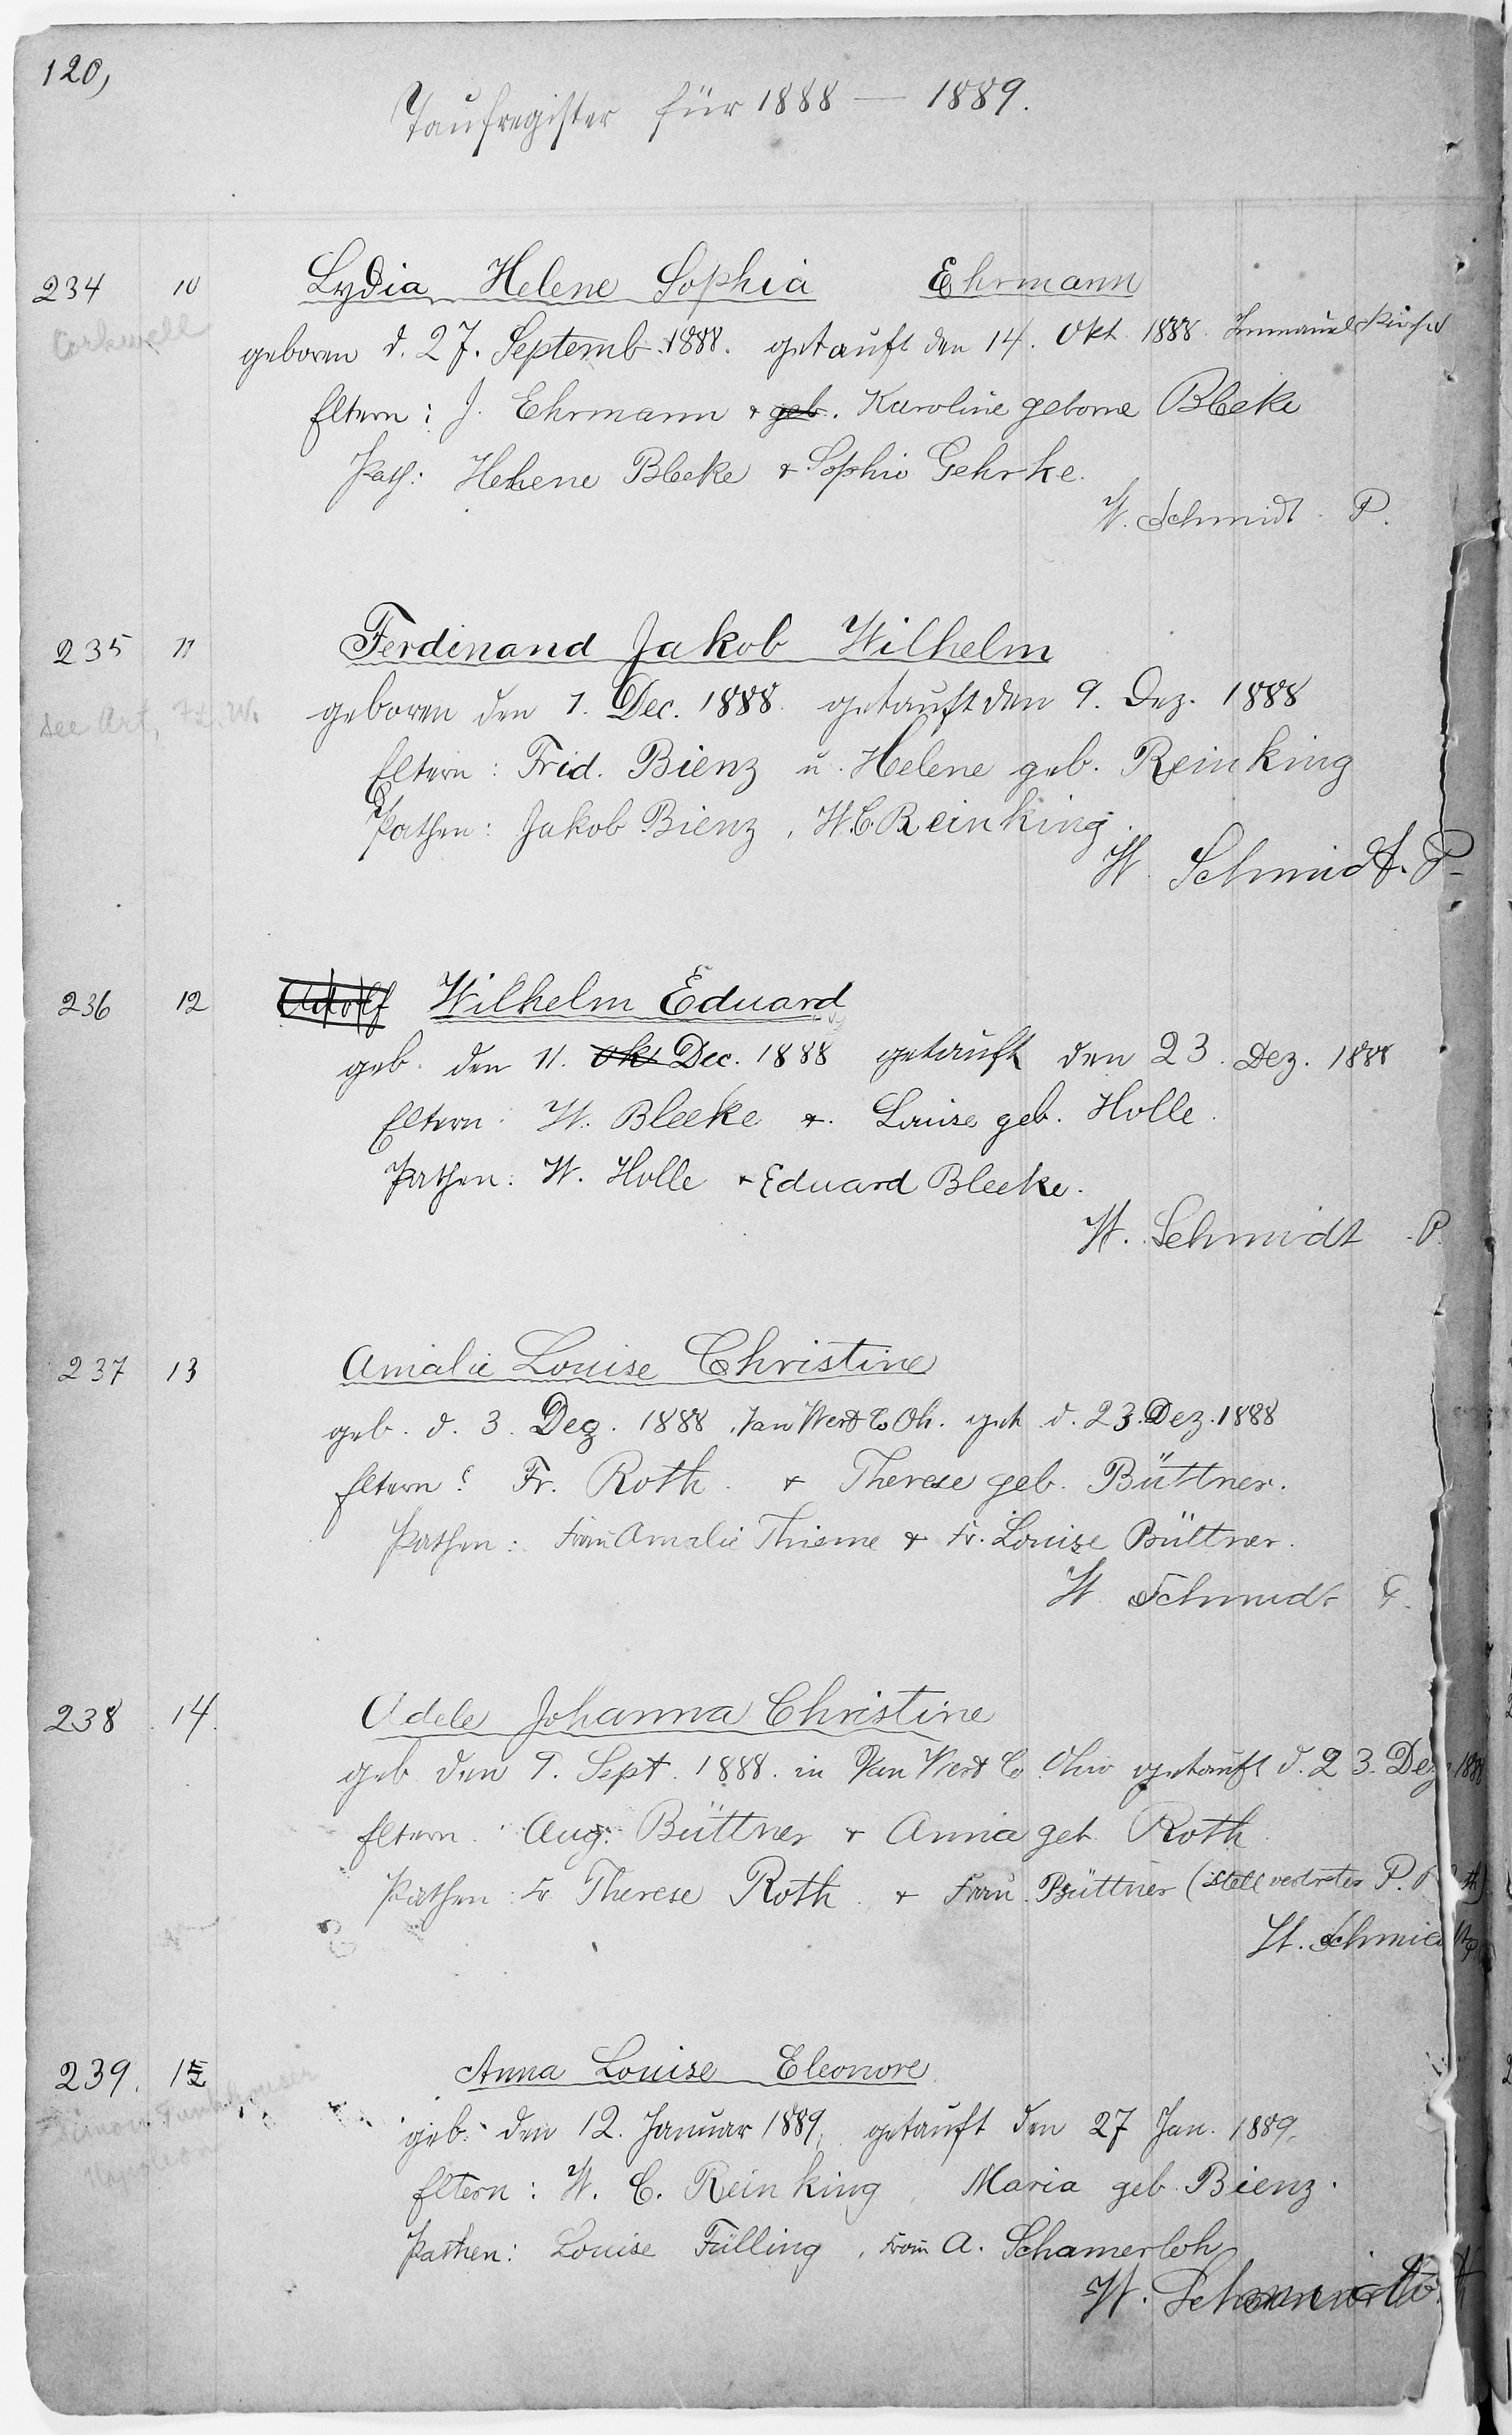 120,
Taufregister für 1888 — 1889.
234 10 Lydia Helene Sophia Ehrmann
Corkwell
geboren d. 27. Septemb. 1888. getauft den 14. Okt. 1888 Immanuels Kirche
Eltern: J. Ehrmann & geb. Karoline geborne Bleeke
Path: Helene Bleeke & Sophie Gehrke.
W. Schmidt. P.
235 11 Ferdinand Jakob Wilhelm
see Art, F.J.W.
geboren den 1. Dec. 1888. getauft den 9. Dez. 1888
Eltern: Frid. Bienz u. Helene geb. Reinking
Pathen: Jakob Bienz, W.C. Reinking.
W. Schmidt. P.
236 12 Adolf Wilhelm Eduard
geb. den 11. Okt Dec. 1888 getauft den 23. Dez. 1888
Eltern: W. Bleeke &. Louise geb. Holle.
Pathen: W. Holle & Eduard Bleeke.
W. Schmidt. P.
237 13 Amalie Louise Christine
geb. d. 3. Dez. 1888. Van Wert Co Oh. get d. 23. Dez. 1888
Eltern: Fr. Roth. & Therese geb. Büttner.
Pathen: Frau Amalie Thieme & Fr. Louise Büttner.
W. Schmidt P.
238 14. Adele Johanna Christine
geb den 9. Sept. 1888. in Van Wert Co Ohio getauft d. 23. Dez 1888
Eltern. Aug. Büttner & Anna geb. Roth
Pathen: Fr Therese Roth. & Frau. Büttner (stellvertreter P.
W. Schmidt
239. 15 Anna Louise Eleonore
geb. den 12. Januar 1889. getauft den 27 Jan. 1889.
Napoleon
Eltern: W. C. Reinking, Maria geb. Bienz.
Pathen: Louise Fülling, Frau A. Schamerloh
W. Schmidt